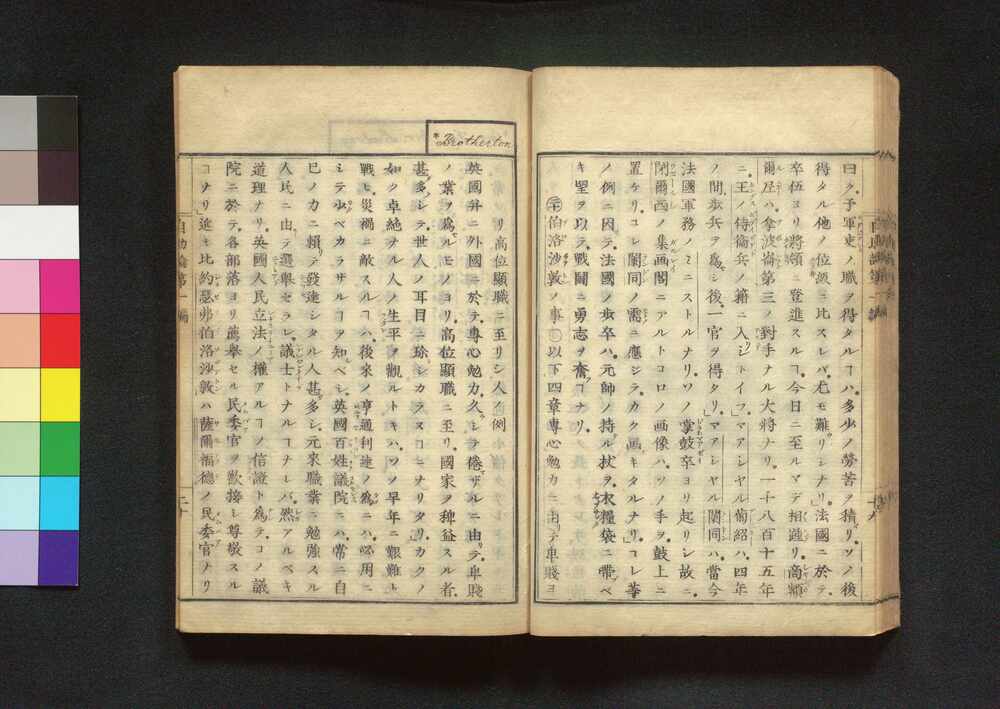 曰ク.子軍吏ノ職ヲ得タルヿハ.多少ノ勞苦ヲ積リ.ソノ後
得タル他ノ位級ニ比スレバ.尤モ難リシナリ」法國ニ於テ.
卒伍ヨリ將領ニ登進スルヿ.今日ニ至ルマデ相踵リ.高
爾.拿波崙第三ノ對手ナル大將ナリ.一千八百十五年
ニ.王ノ侍衞兵ノ籍ニ入リシトイフ」マアシヤル葡紹ハ.四年
ノ間歩兵ヲ爲シ後.一官ヲ得タリ」マアシヤル閙同ハ.當今
法國軍務ノミニストルナリ.ソノ掌鼓卒ヨリ起リシ故ニ.
ノ集画閣ニアルトコロノ画像ハ.ソノ手ヲ鼓上ニ
置ケリ.コレ閙同ノ需ニ應ジテ.カク画キタルナリ」コレ等
ノ例ニ因テ.法國ノ歩卒ハ.元帥ノ持ル杖ヲ.糧袋ニ帶ベ
キ望ヲ以テ.戰鬪ニ勇志ヲ奮フナリ.
伯洛沙敦ノ事 以下四章專心勉力ニ由テ卑賤ヨ
リ高位顯職ニ至リシ人ノ例
Brotherton
英國并ニ外國ニ於テ.專心勉力.久シテ倦ザルニ由リテ.卑賤
ノ業ヲ爲ルモノヨリ.高位顯職ニ至リ.國家ヲ裨益スル者.
甚多シテ.世人ノ耳目ニ珍シカラヌヿニナリタリ」カクノ
如ク卓絶ナル人ノ生平ヲ觀ルトキハ.ソノ早年ニ艱難ト
戰ヒ.災禍ニ敵スルヿハ.後來ノ亨通利達ノ爲ニハ必用ニ
ミテ少ベカラザルヿヲ知ベシ.英國百姓議院ニハ.常ニ自
己ノ力ニ賴テ發達シタル人甚多シ.元來職業ニ勉強スル
人民ニ由テ選擧セラレ.議士トナルヿナレバ.然アルベキ
道理ナリ.英國人民立法ノ權アルヿノ信證ト爲テ.コノ議
院ニ於テ.各部落ヨリ薦擧セル民委官ヲ歡接シ尊敬スル
ヿナリ」近キ比約瑟弗伯洛沙敦ハ薩爾福德ノ民委官ナリ
自助論第一編